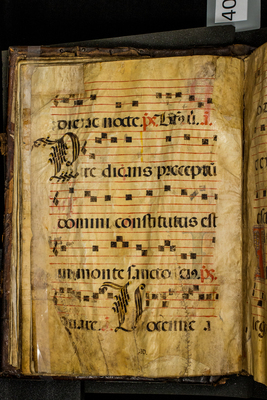 40
die ac nocte. ps.
Predicans preceptũ
domini constitutus est
in monte sancto eius. ps.
Quare. Voce me a